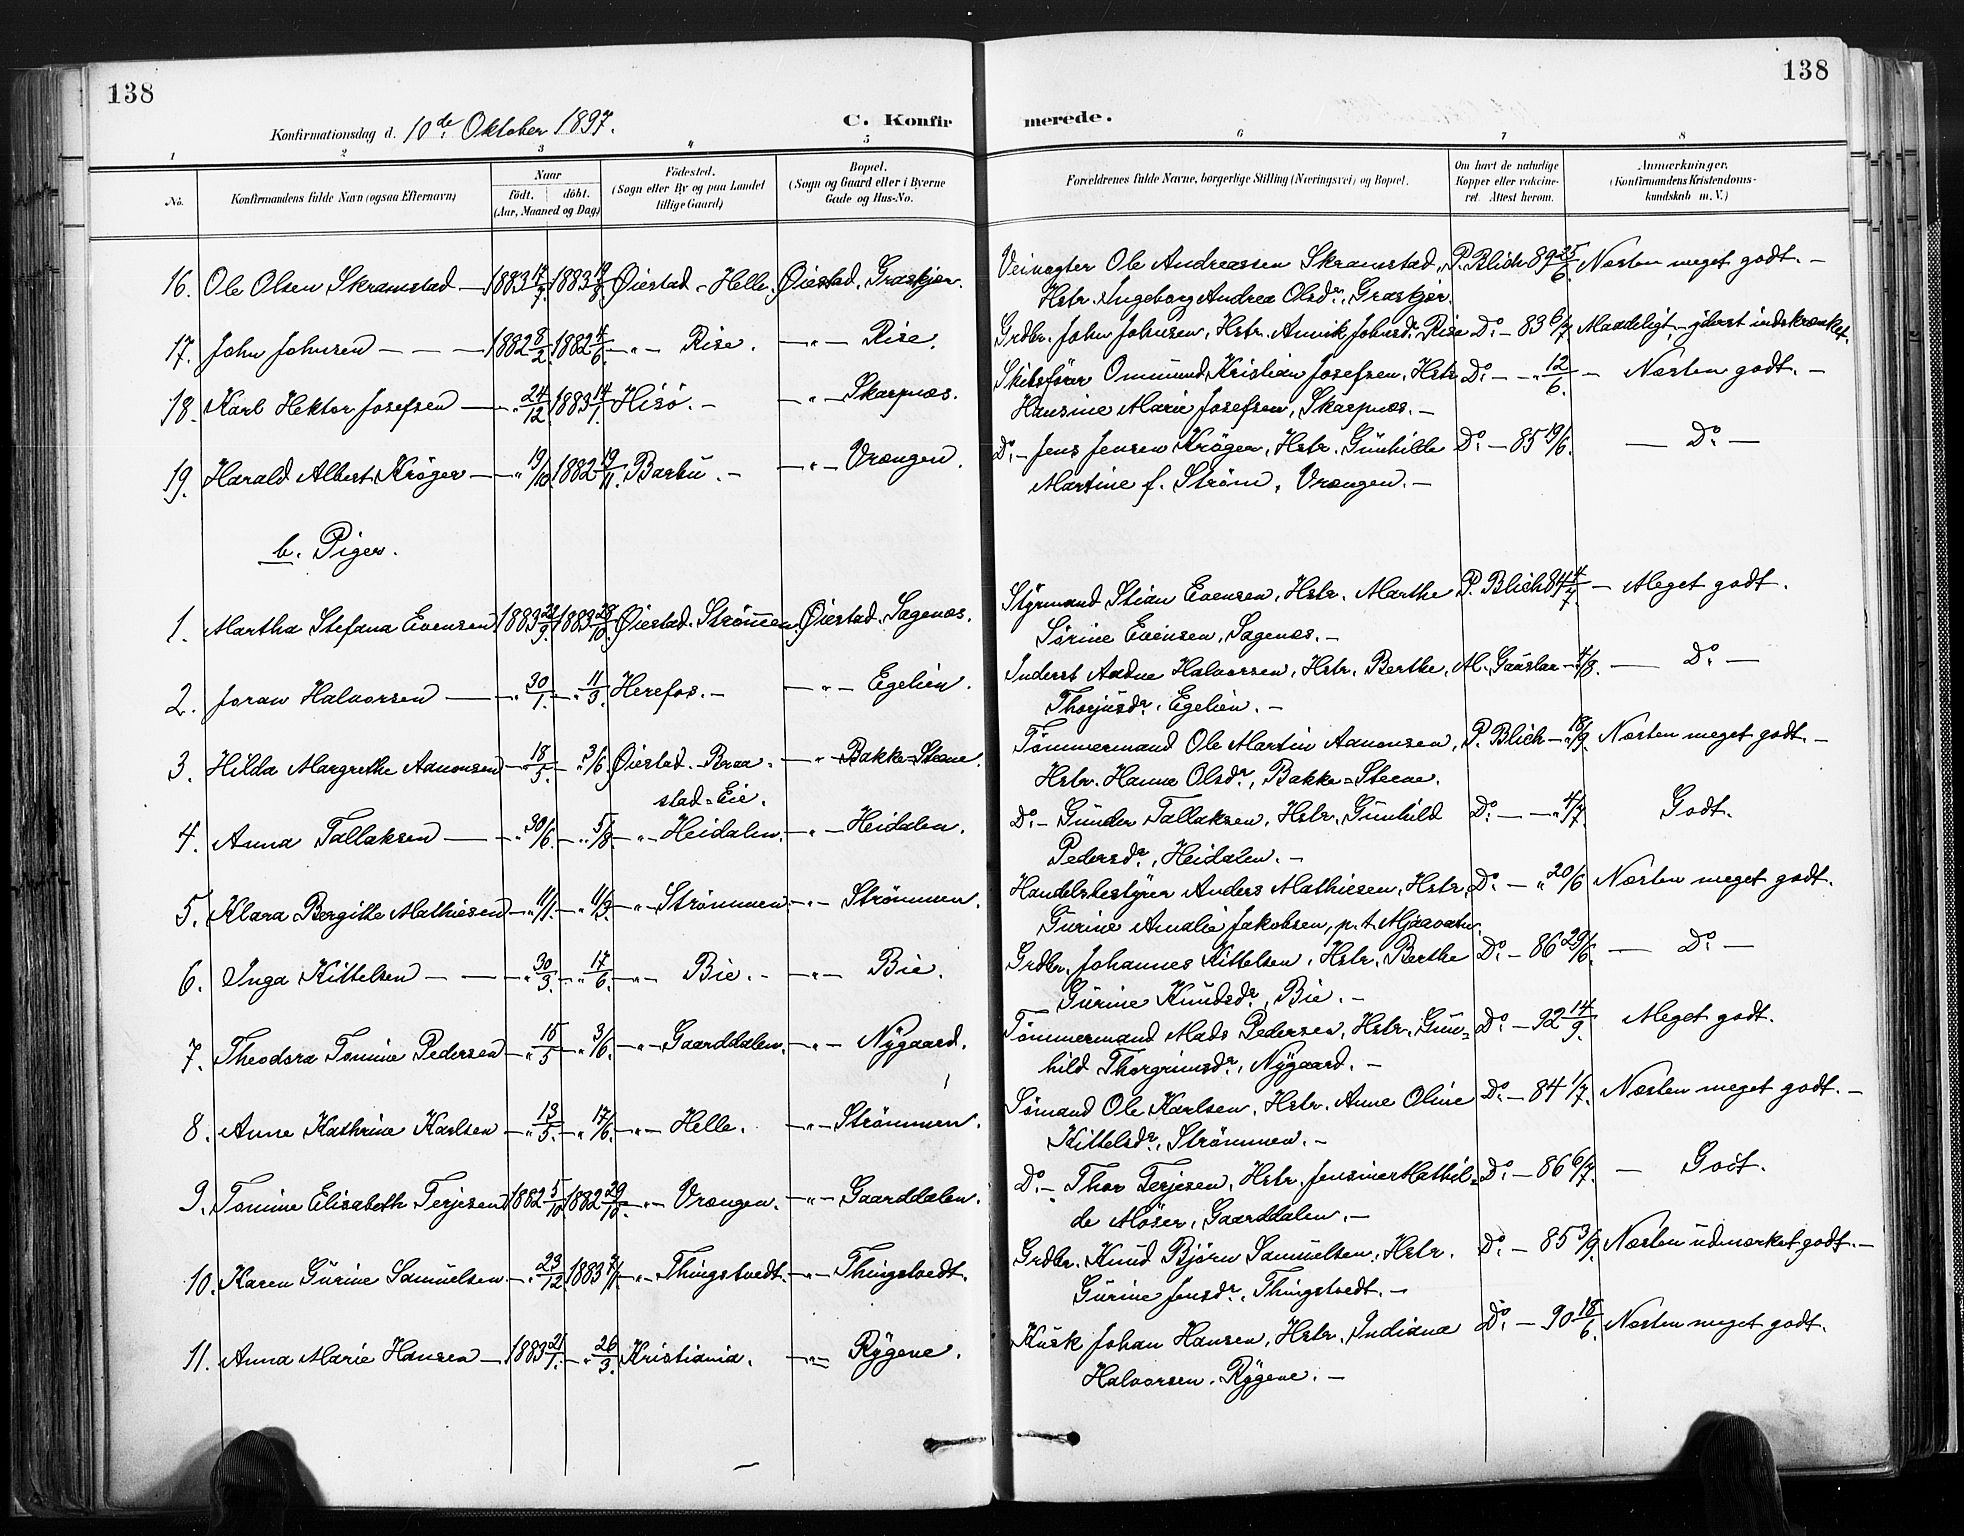 138
138
Konfirmationsdag d. 10de Oktober 1897.
C. Konfirmerede.
1 2 3 4 5 6 7 8
No.
Konfirmandens fulde Navn (ogsaa Efternavn)
Naar
født. døbt.
(Aar, Maaned og Dag)
Födested.
(Sogn eller By og paa Landet
tillige Gaard)
Bopæl.
(Sogn og Gaard eller i Byerne
Gade og Hus-No.
Forældrenes fulde Navne, borgerlige Stilling (Næringsvei) og Bopæl.
Om havt de naturlige
Kopper eller vaccine-
ret. Attest herom.
Anmærkninger.
(Konfirmandens Kristendoms-
kundskab m. V.)
16. Ole Olsen Skramstad — 1883 17/7. 1883 19/8 Øiestad - Helle. Øiestad. Graskjær. Veivogter Ole Andreassen Skramstad, P. Blich 89 25/6. Næsten meget godt. —
Hstr. Ingeborg Andrea Olsdr., Graskjær.
17. John Johnsen — — — 1882 8/2. 1882 4/6. —„— Rise. —„— Rise. Grdbr. John Johnsen, Hstr. Annik Johnsdr. Rise Do. — 83 6/7 Maadeligt, yderst indskrænket.
18. Karl Hektor Josefsen — —„ 24/12. 1883 14/1. Hisö. — —„— Skarpnæs. Skibsfører Ommund Kristian Josefsen, Hstr. Do. — —„ 12/6. — Næsten godt. —
Hansine Marie Josefsen, Skarpnæs. —
19. Harald Albert Krøger — —„ 19/10. 1882 19/11. Barbu. — —„— Vrængen. Do. — Jens Jensen Krøger, Hstr. Gunhilde Do. — 85 19/6. — Do. —
Martine f. Strøm, Vrængen. —
b. Piger.
1. Martha Stefana Evensen 1883 21/9. 1883 28/10. Øiestad. Strömmen. Øiestad. Sagenæs. Styrmand Stian Evensen, Hstr. Marthe P. Blich 84 4/7. — Meget godt.
Sörine Evensen, Sagenæs. —
2. Joran Halvorsen — —„ 30/1. —„ 11/3. Herefos. — —„— Egelien. Inderst Aadne Halvorsen, Hstr. Berthe, M. Gauslaa —„ 4/8. — Do. —
Thorjusdr., Egelien. —
3. Hilda Margrethe Aanonsen —„ 18/5. —„ 3/6. Øiestad. Braa- —„— Bakke-Steene. Tömmermand Ole Martin Aanonsen, P. Blich —„ 18/9. Næsten meget godt. —
stad-Eie. Hstr. Hanne Olsdr., Bakke-Steene.
4. Anna Tallaksen — —„ 30/6. —„ 5/8. —„— Heidalen. —„— Heidalen. Do. — Gunder Tallaksen, Hstr. Gunhild Do. — —„ 4/7. Godt.
Pedersdr., Heidalen. —
5. Klara Bergitte Mathiesen —„ 11/1. —„ 11/3. —„— Strömmen. —„— Strömmen. Handelsbestyrer Anders Mathiesen, Hstr. Do. — „ 20/6 Næsten meget godt.
Gurine Amalie Jakobsen, p.t. Mjaavatn.
6. Inga Kittelsen — — —„ 30/3. —„ 17/6. —„— Bie. — —„— Bie. Grdbr. Johannes Kittelsen, Hstr. Berthe Do. — 86 29/6. — Do. —
Gurine Knudsdr., Bie. —
7. Theodora Tomine Pedersen —„ 15/5. —„ 3/6. —„— Gaarddalen. —„— Nygaard. Tömmermand Mads Pedersen, Hstr. Gun- Do. — 92 14/9. Meget godt.
hild Thorgrimsdr., Nygaard. —
8. Anne Kathrine Karlsen —„ 13/5. —„ 17/6. —„— Helle. —„— Strömmen. Sömand Ole Karlsen, Hstr. Anne Oline Do. — 84 1/7. Næsten meget godt. —
Kittelsdr., Strömmen. —
9. Tomine Elisabeth Terjesen 1882 5/10. 1882 29/10. —„— Vrængen. —„— Gaarddalen. Do. — Thor Terjesen, Hstr. Jensine Mathil- Do. — 86 6/7. — Godt.
de Möser, Gaarddalen. —
10. Karen Gurine Samuelsen —„ 23/12. 1883 7/1. —„— Thingstvedt. —„— Thingstvedt. Grdbr. Knud Bjørn Samuelsen, Hstr. Do. — 85 3/9. Næsten udmærket godt. —
Gurine Jensdr., Thingstvedt. —
11. Anna Marie Hansen — 1883 21/1. —„ 26/3. Kristiania. —„— Rygene. Kusk Johan Hansen, Hstr. Indiana Do. — 90 18/6. Næsten meget godt.
Halvorsen. Rygene. —